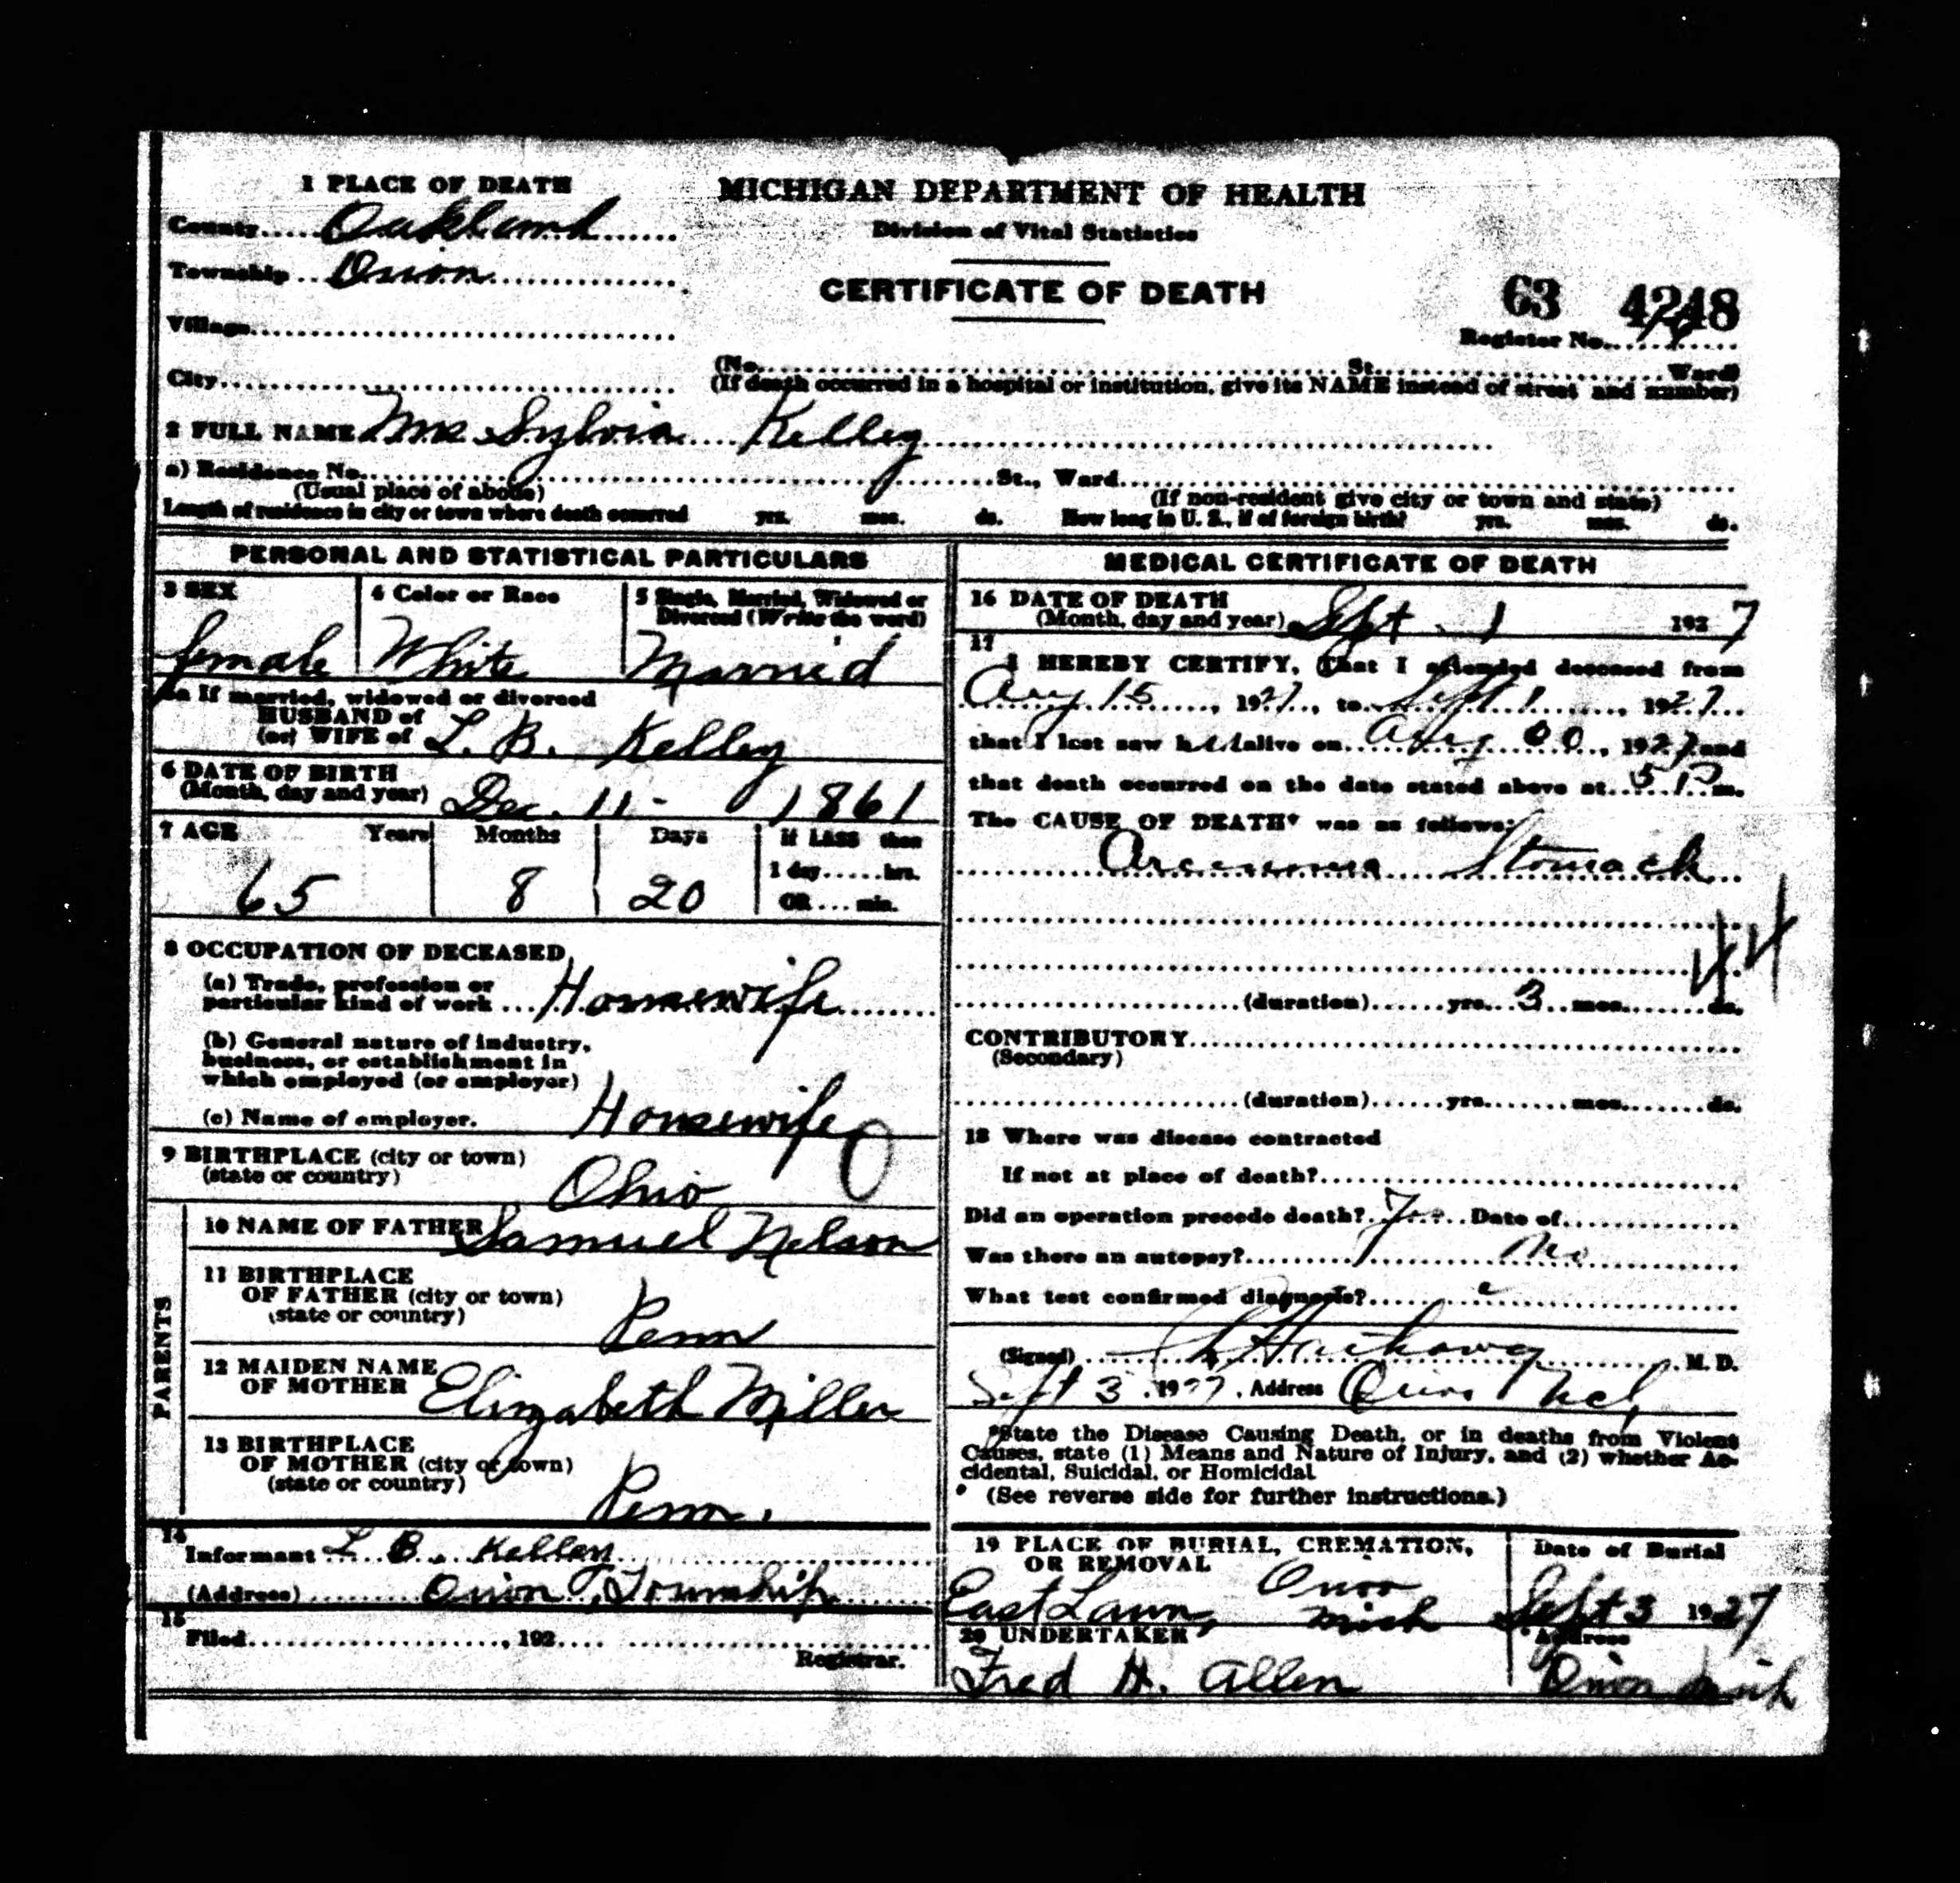 1 PLACE OF DEATH
MICHIGAN DEPARTMENT OF HEALTH
Division of Vital Statistics
CERTIFICATE OF DEATH
County Oakland
Township Orion
Village
City
63 4248
Register No.
(No. St. Ward)
(If death occurred in a hospital or institution, give its NAME instead of street and number)
2 FULL NAME Mrs Sylvia Kelley
a) Residence No. St., Ward
(Usual place of abode) (If non-resident give city or town and state)
Length of residence in city or town where death occurred yrs. mos. ds. How long in U. S., if of foreign birth? yrs. mos. ds.
PERSONAL AND STATISTICAL PARTICULARS
3 SEX 4 Color or Race 5 Single, Married, Widowed or
Divorced (Write the word)
female White Married
5a If married, widowed or divorced
HUSBAND of
(or) WIFE of L. B. Kelley
6 DATE OF BIRTH
(Month, day and year) Dec. 11 - 1861
7 AGE Years Months Days If LESS than
1 day hrs.
OR min.
65 8 20
8 OCCUPATION OF DECEASED
(a) Trade, profession or
particular kind of work Housewife
(b) General nature of industry,
business, or establishment in
which employed (or employer)
(c) Name of employer. Housewife
9 BIRTHPLACE (city or town)
(state or country) Ohio
PARENTS
10 NAME OF FATHER Samuel Nelson
11 BIRTHPLACE
OF FATHER (city or town)
(state or country) Penn
12 MAIDEN NAME
OF MOTHER Elizabeth Miller
13 BIRTHPLACE
OF MOTHER (city or town)
(state or country) Penn.
14
Informant L. B. Kelley
(Address) Orion Township
15
Filed , 192
Registrar.
MEDICAL CERTIFICATE OF DEATH
16 DATE OF DEATH
(Month, day and year) Sept. 1 1927
17
I HEREBY CERTIFY, That I attended deceased from
Aug 15, 1927, to Sept 1, 1927
that I last saw her alive on Aug , 1927 and
that death occurred on the date stated above at 5 P m.
The CAUSE OF DEATH* was as follows:
Stomach
44
(duration) yrs. 3 mos. ds.
CONTRIBUTORY
(Secondary)
(duration) yrs. mos. ds.
18 Where was disease contracted
If not at place of death?
Did an operation precede death? Date of
Was there an autopsy? No
What test confirmed diagnosis?
(Signed) M. D.
Sept 3, 1927, Address
*State the Disease Causing Death, or in deaths from Violent
Causes, state (1) Means and Nature of Injury, and (2) whether Ac-
cidental, Suicidal, or Homicidal
(See reverse side for further instructions.)
19 PLACE OF BURIAL, CREMATION,
OR REMOVAL
Date of Burial
East Lawn, Orion Mich Sept 3 1927
20 UNDERTAKER Address
Fred H. Allen Orion Mich